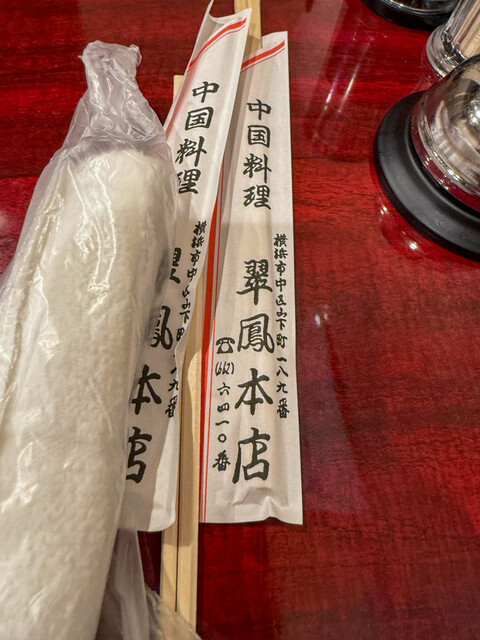 中国料理
横浜市中区山下町一八九番
翠鳳本店
☎(662)六四一〇番
中国料理
横浜市中区山下町一八九番
翠鳳本店